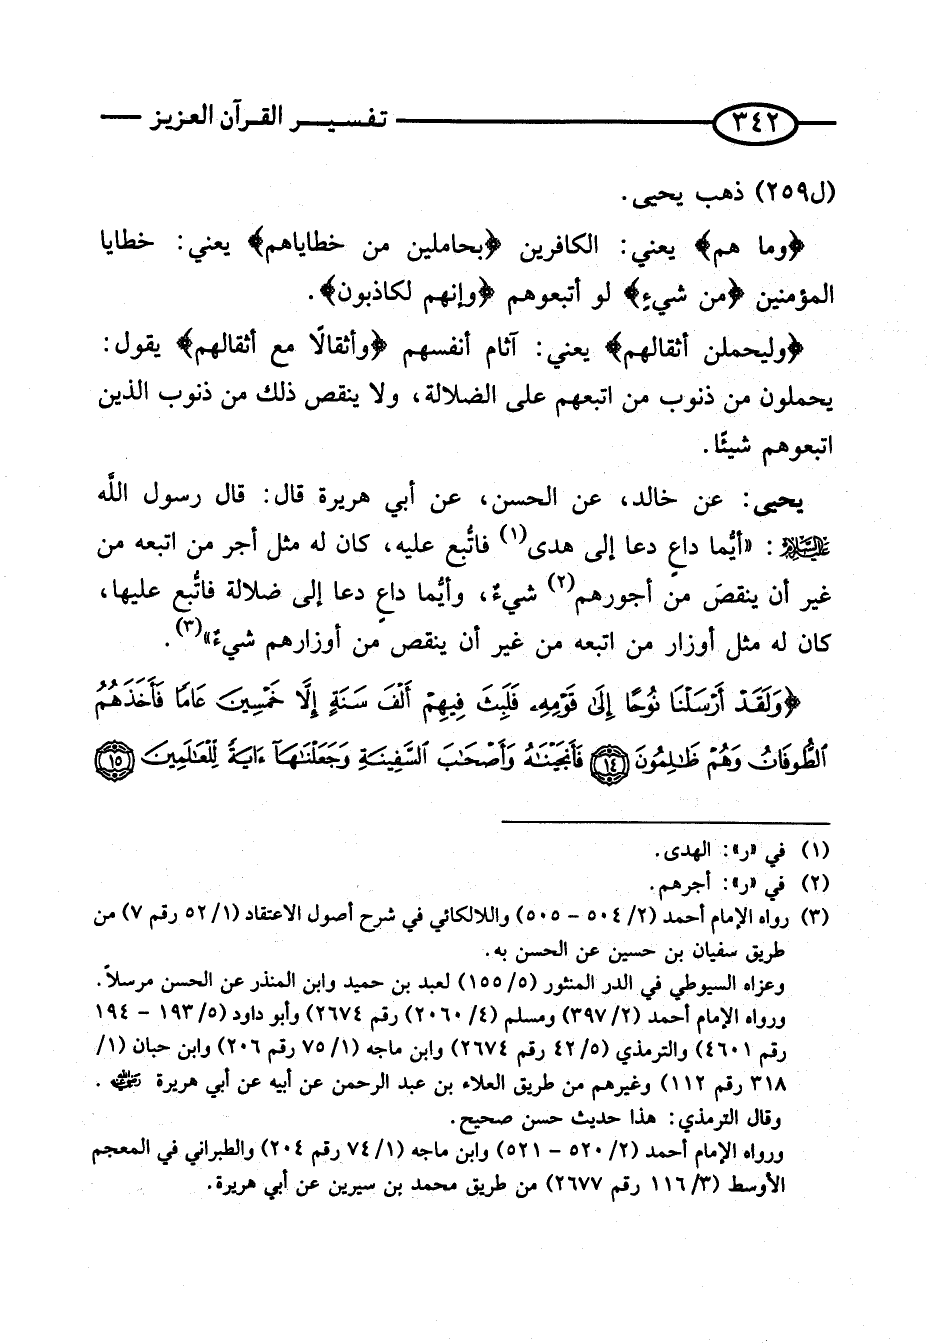 ٣٤٢ تفسير القرآن العزيز
(ل٢٥٩) ذهب يحيى.
﴿وما هم﴾ يعني: الكافرين ﴿بحاملين من خطاياهم﴾ يعني: خطايا
المؤمنين ﴿من شيءٍ﴾ لو أتبعوهم ﴿وإنهم لكاذبون﴾.
﴿وليحملن أثقالهم﴾ يعني: آثام أنفسهم ﴿وأثقالًا مع أثقالهم﴾ يقول:
يحملون من ذنوب من اتبعهم على الضلالة، ولا ينقص ذلك من ذنوب الذين
اتبعوهم شيئًا.
يحيى: عن خالد، عن الحسن، عن أبي هريرة قال: قال رسول اللَّه
عليه السلام: «أيُّما داعٍ دعا إلى هدى(١) فاتُّبع عليه، كان له مثل أجر من اتبعه من
غير أن ينقصَ من أجورهم(٢) شيءٌ، وأيُّما داعٍ دعا إلى ضلالة فاتُّبع عليها،
كان له مثل أوزار من اتبعه من غير أن ينقص من أوزارهم شيءٌ»(٣).
﴿وَلَقَدْ أَرْسَلْنَا نُوحًا إِلَىٰ قَوْمِهِۦ فَلَبِثَ فِيهِمْ أَلْفَ سَنَةٍ إِلَّا خَمْسِينَ عَامًا فَأَخَذَهُمُ
ٱلطُّوفَانُ وَهُمْ ظَـٰلِمُونَ ١٤ فَأَنجَيْنَـٰهُ وَأَصْحَـٰبَ ٱلسَّفِينَةِ وَجَعَلْنَـٰهَآ ءَايَةً لِّلْعَـٰلَمِينَ ١٥
(١) في «ر»: الهدى.
(٢) في «ر»: أجرهم.
(٣) رواه الإمام أحمد (٢/ ٥٠٤ - ٥٠٥) واللالكائي في شرح أصول الاعتقاد (١/ ٥٢ رقم ٧) من
طريق سفيان بن حسين عن الحسن به.
وعزاه السيوطي في الدر المنثور (٥/ ١٥٥) لعبد بن حميد وابن المنذر عن الحسن مرسلاً.
ورواه الإمام أحمد (٢/ ٣٩٧) ومسلم (٤/ ٢٠٦٠) رقم ٢٦٧٤) وأبو داود (٥/ ١٩٣ - ١٩٤
رقم ٤٦٠١) والترمذي (٥/ ٤٢ رقم ٢٦٧٤) وابن ماجه (١/ ٧٥ رقم ٢٠٦) وابن حبان (١/
٣١٨ رقم ١١٢) وغيرهم من طريق العلاء بن عبد الرحمن عن أبيه عن أبي هريرة.
وقال الترمذي: هذا حديث حسن صحيح.
ورواه الإمام أحمد (٢/ ٥٢٠ - ٥٢١) وابن ماجه (١/ ٧٤ رقم ٢٠٤) والطبراني في المعجم
الأوسط (٣/ ١١٦ رقم ٢٦٧٧) من طريق محمد بن سيرين عن أبي هريرة.